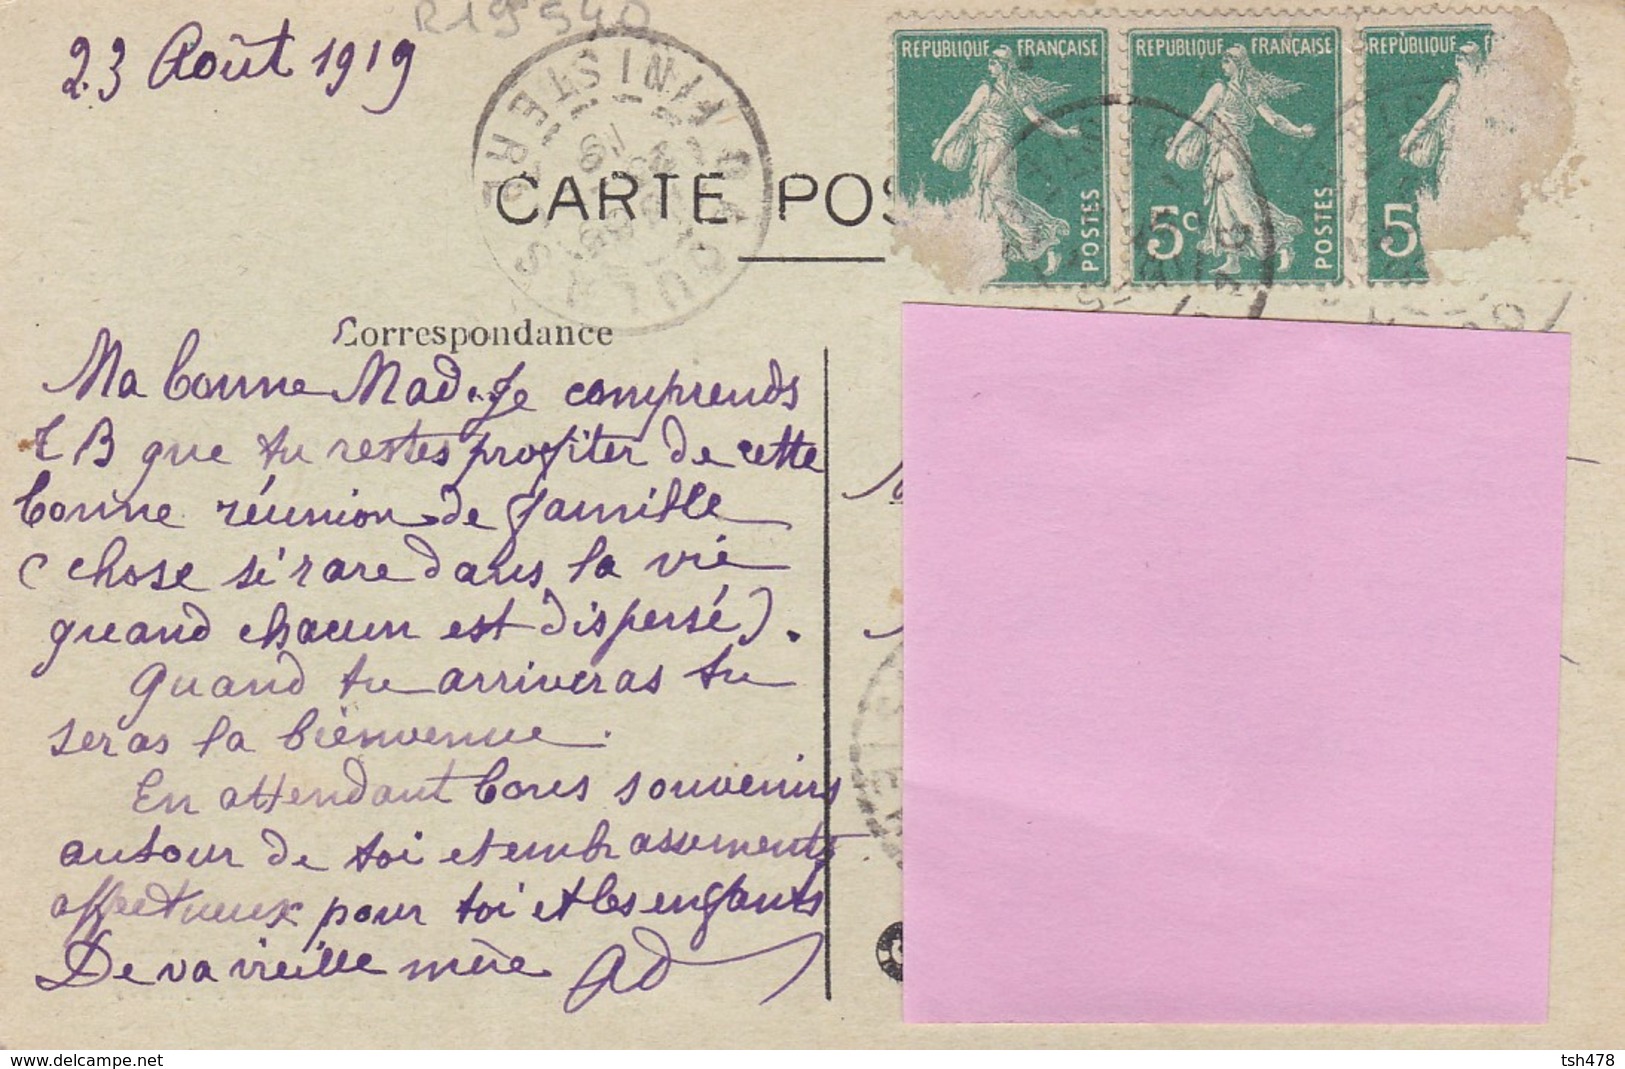 R19540
23 Août 1919
FINISTERE
CARTE POS
REPUBLIQUE FRANÇAISE
POSTES
REPUBLIQUE FRANÇAISE
5c POSTES
REPUBLIQUE
5
Correspondance
Ma bonne Mad. Je comprends
TB que tu restes profiter de cette
bonne réunion de famille
(chose si rare dans la vie
quand chacun est dispersé).
Quand tu arriveras tu
seras la bienvenue.
En attendant bons souvenirs
autour de toi et embrassements
affectueux pour toi et les enfants
De va vieille mère Ad
www.delcampe.net
tsh478